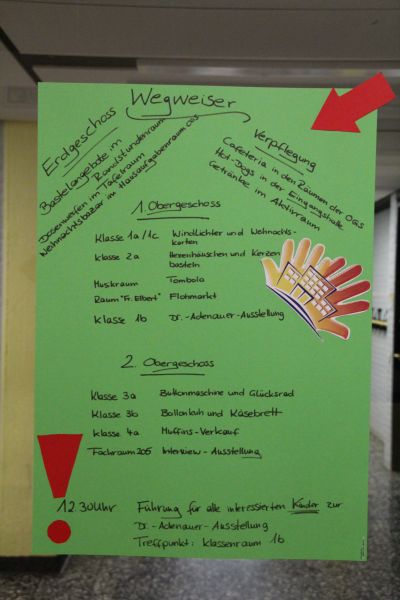 Wegweiser
Erdgeschoss
Bastelangebote im
Randstundenraum
Dosenwerfen im Tafelraum
Weihnachtsbazar im Hausaufgabenraum OGS
Verpflegung
Cafeteria in den Räumen der OGS
Hot-Dogs in der Eingangshalle
Getränke im Aktivraum
1. Obergeschoss
Klasse 1a/1c Windlichter und Weihnachts-
karten
Klasse 2a Hexenhäuschen und Kerzen
basteln
Musikraum Tombola
Raum "Fr. Elbert" Flohmarkt
Klasse 1b Dr.-Adenauer-Ausstellung
2. Obergeschoss
Klasse 3a Buttonmaschine und Glücksrad
Klasse 3b Ballonkuh und Käsebrett
Klasse 4a Muffins-Verkauf
Fachraum 205 Interview-Ausstellung
12.30 Uhr Führung für alle interessierten Kinder zur
Dr.-Adenauer-Ausstellung
Treffpunkt: Klassenraum 1b